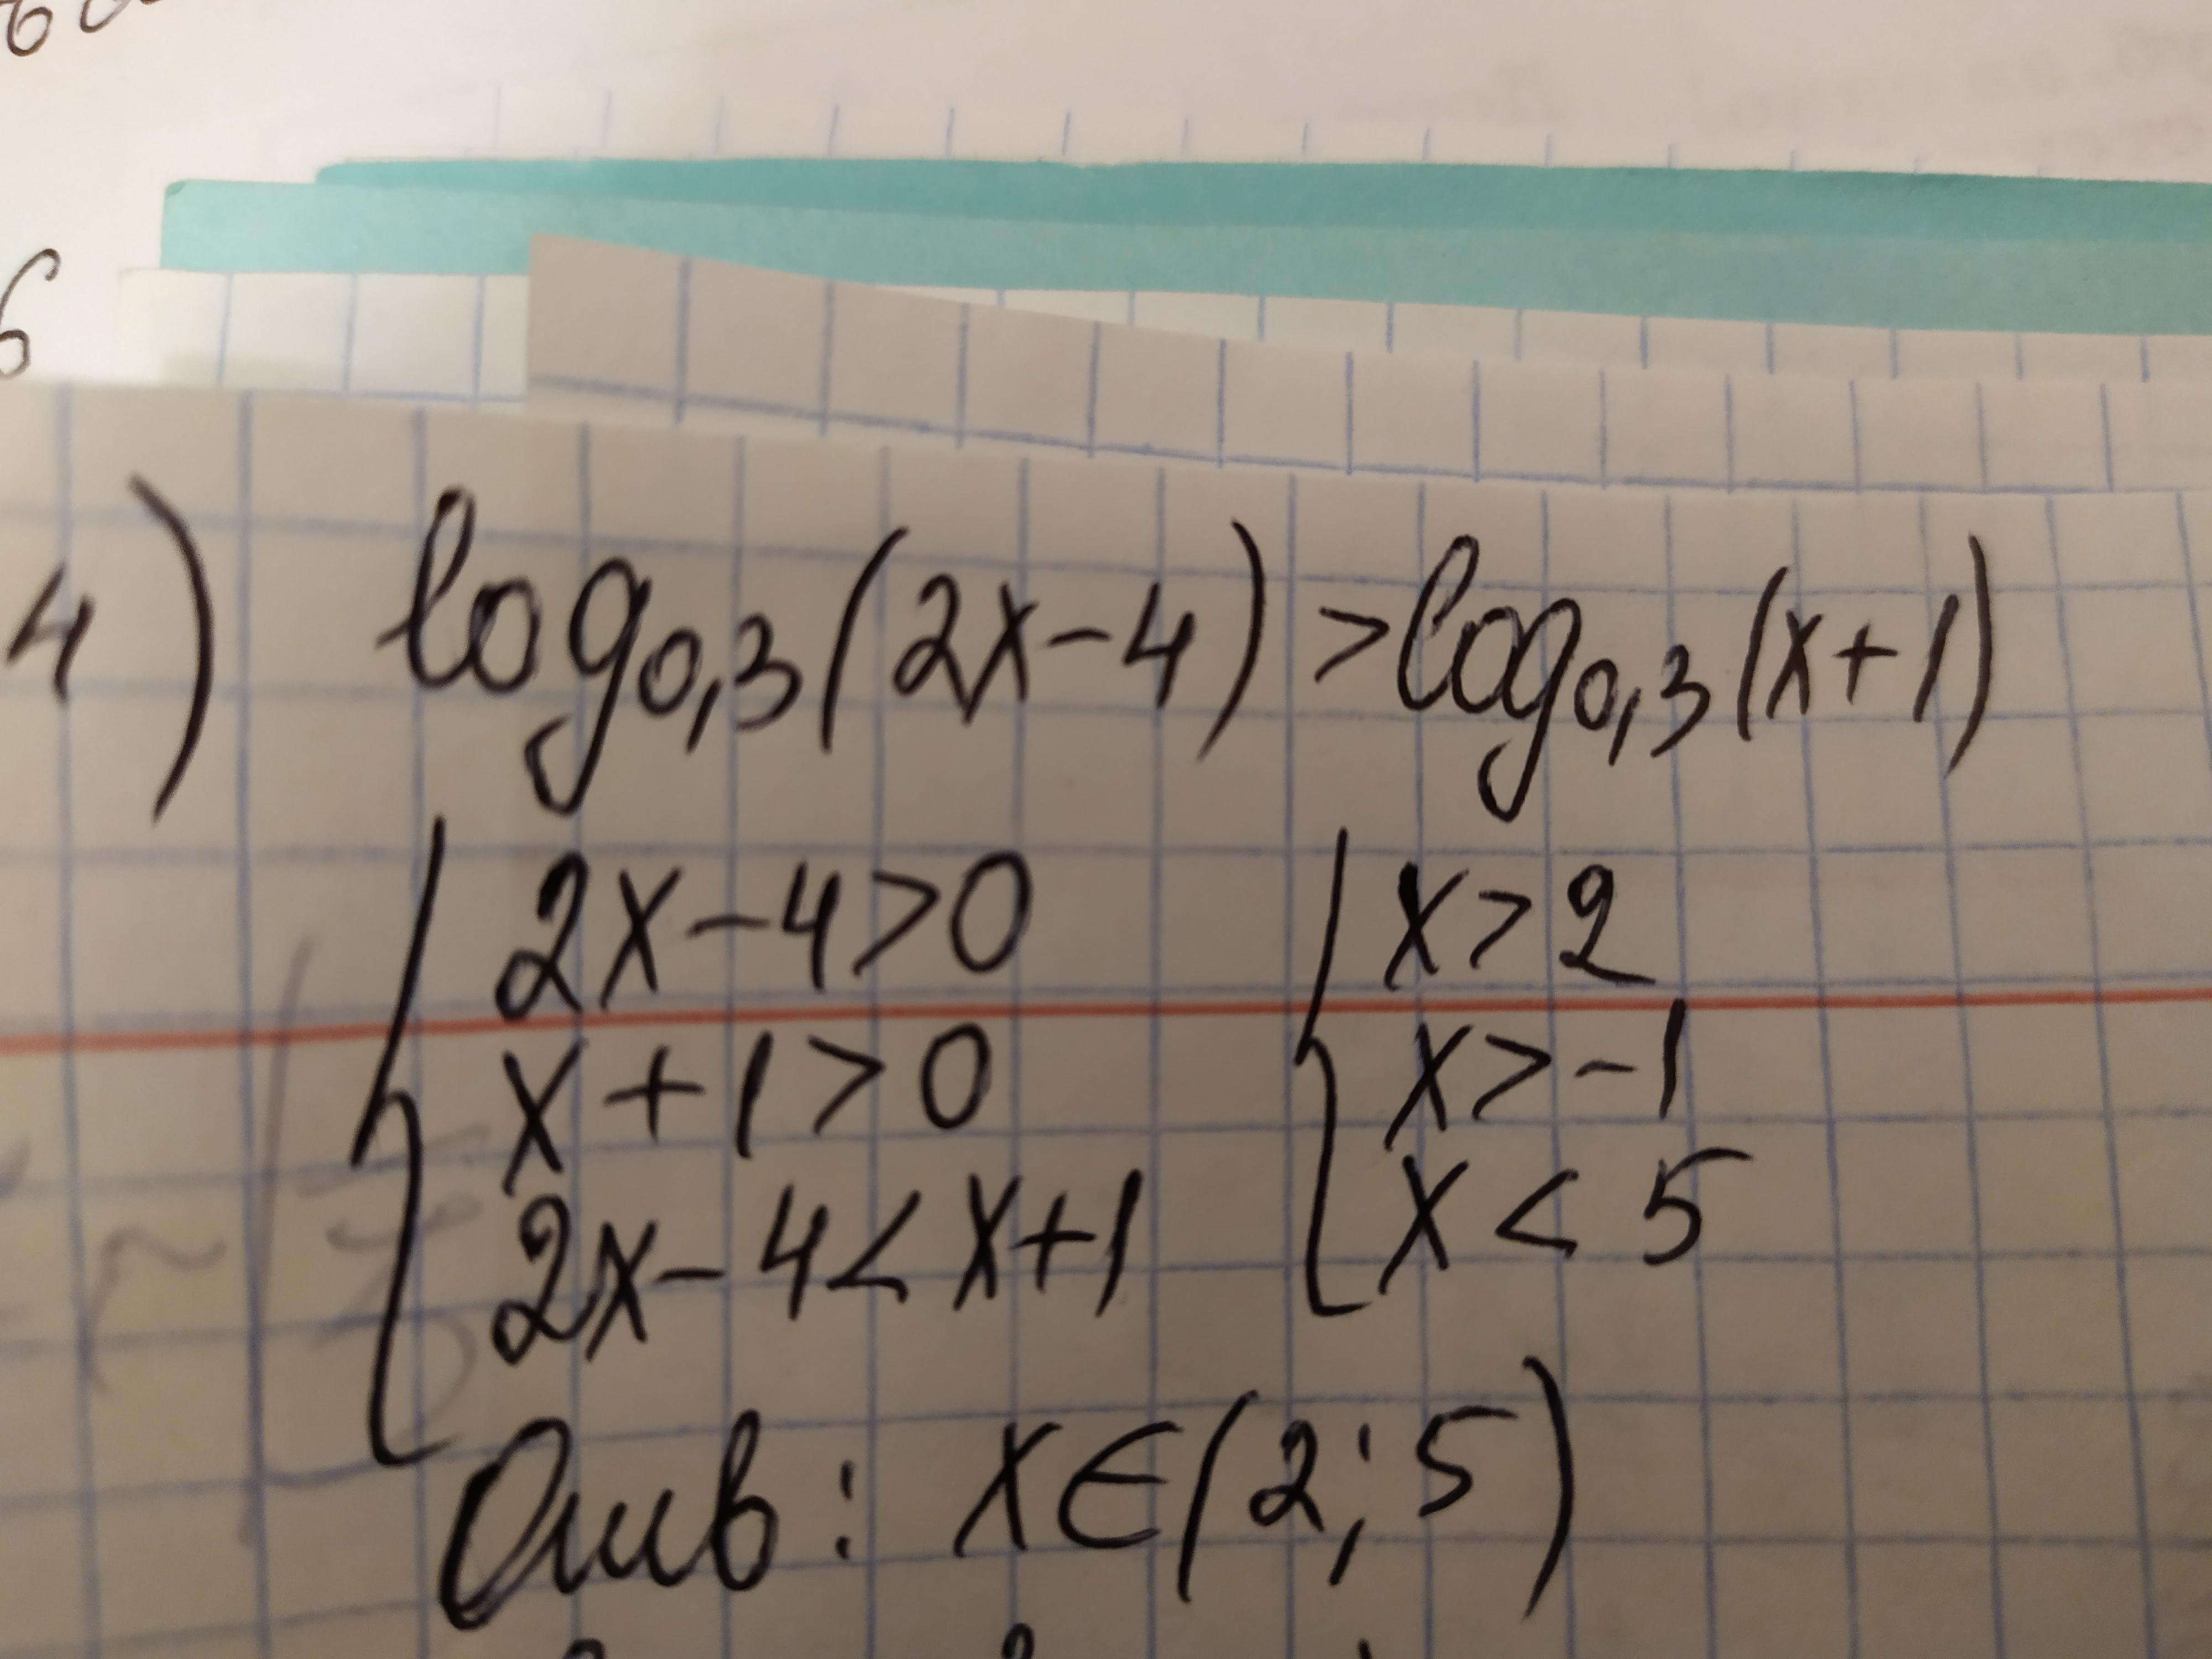 4) log₀,₃(2x-4)>log₀,₃(x+1)
{2x-4>0 {x>2
x+1>0 x>-1
2x-4<x+1 x<5
Отв: x∈(2;5)